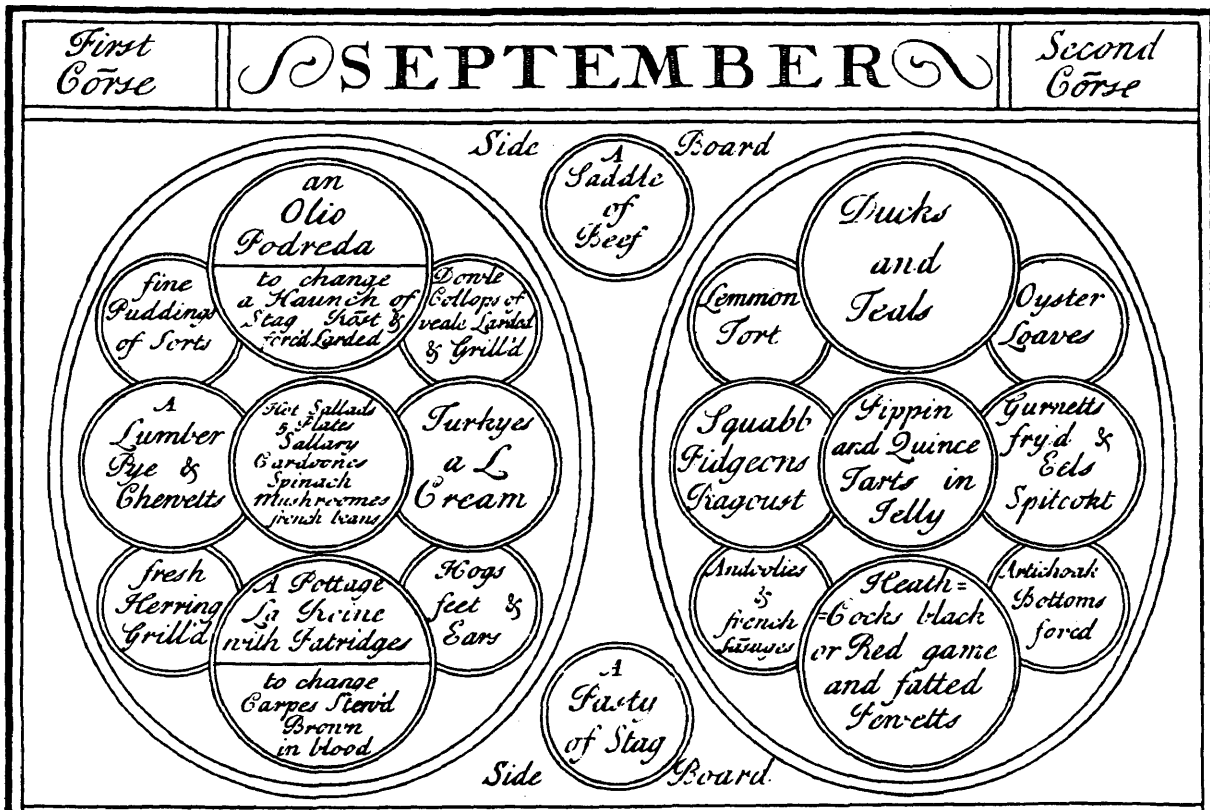 First
Cōrse
SEPTEMBER
Second
Cōrse
Side Board
A
Saddle
of
Beef
an
Olio
Podreda
to change
a Haunch of
Stag Rōst &
forc'd Larded
fine
Puddings
of Sorts
Collops of
veale Larded
& Grill'd
A
Lumber
Pye &
Chewetts
Hot Sallads
5 Plates
Sallary
Cardoones
Spinach
Mushroomes
french beans
Turkyes
a L
Cream
fresh
Herring
Grill'd
A Pottage
La Reine
with Patridges
to change
Carpes Stew'd
Brown
in blood
Hogs
feet &
Ears
Ducks
and
Teals
Lemmon
Tort
Oyster
Loaves
Squabb
Pidgeons
Ragoust
Pippin
and Quince
Tarts in
Jelly
Gurnetts
fry'd &
Eels
Spitcokt
Andoolies
&
french
Sāsuges
Heath=
=Cocks black
or Red game
and fatted
Artichoak
Bottoms
forced
A
Pasty
of Stag
Side Board